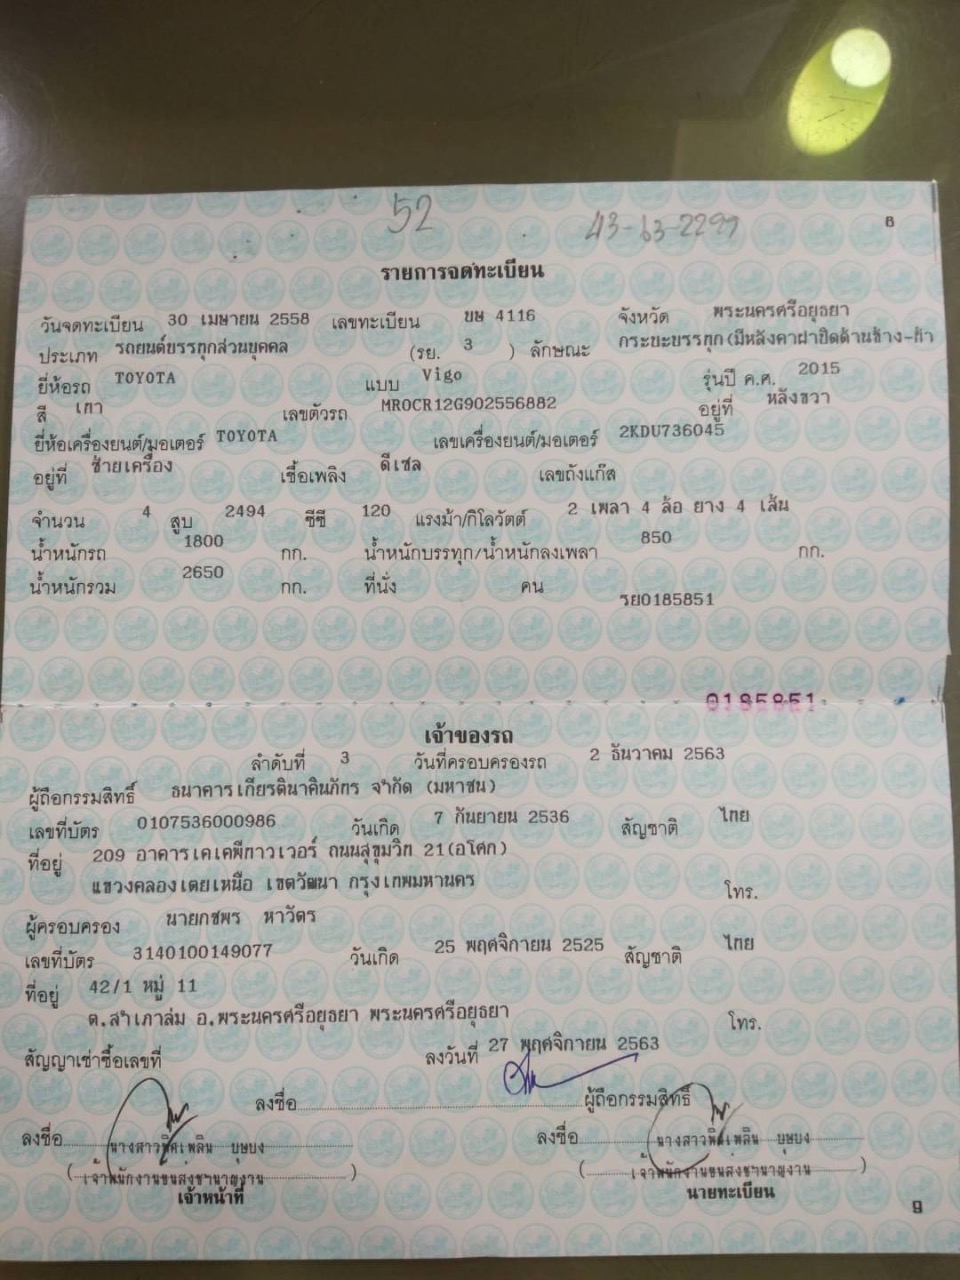 52 43-63-2299 8
รายการจดทะเบียน
วันจดทะเบียน 30 เมษายน 2558 เลขทะเบียน บษ 4116 จังหวัด พระนครศรีอยุธยา
ประเภท รถยนต์บรรทุกส่วนบุคคล (รย. 3 ) ลักษณะ กระบะบรรทุก(มีหลังคาฝาปิดด้านข้าง-ท้า
ยี่ห้อรถ TOYOTA แบบ Vigo รุ่นปี ค.ศ. 2015
สี เทา เลขตัวรถ MR0CR12G902556882 อยู่ที่ หลังขวา
ยี่ห้อเครื่องยนต์/มอเตอร์ TOYOTA เลขเครื่องยนต์/มอเตอร์ 2KDU736045
อยู่ที่ ซ้ายเครื่อง เชื้อเพลิง ดีเซล เลขถังแก๊ส
จำนวน 4 สูบ 2494 ซีซี 120 แรงม้า/กิโลวัตต์ 2 เพลา 4 ล้อ ยาง 4 เส้น
น้ำหนักรถ 1800 กก. น้ำหนักบรรทุก/น้ำหนักลงเพลา 850 กก.
น้ำหนักรวม 2650 กก. ที่นั่ง คน
รย0185851
0185851
เจ้าของรถ
ลำดับที่ 3 วันที่ครอบครองรถ 2 ธันวาคม 2563
ผู้ถือกรรมสิทธิ์ ธนาคารเกียรตินาคินภัทร จำกัด (มหาชน)
เลขที่บัตร 0107536000986 วันเกิด 7 กันยายน 2536 สัญชาติ ไทย
ที่อยู่ 209 อาคารเคเคพีทาวเวอร์ ถนนสุขุมวิท 21(อโศก)
แขวงคลองเตยเหนือ เขตวัฒนา กรุงเทพมหานคร โทร.
ผู้ครอบครอง นายกชพร หาวัตร
เลขที่บัตร 3140100149077 วันเกิด 25 พฤศจิกายน 2525 สัญชาติ ไทย
ที่อยู่ 42/1 หมู่ 11
ต.สำเภาล่ม อ.พระนครศรีอยุธยา พระนครศรีอยุธยา โทร.
สัญญาเช่าซื้อเลขที่ ลงวันที่ 27 พฤศจิกายน 2563
ลงชื่อ ผู้ถือกรรมสิทธิ์
ลงชื่อ นางสาวพิศเพลิน บุษบง ลงชื่อ นางสาวพิศเพลิน บุษบง
( เจ้าพนักงานขนส่งชำนาญงาน ) ( เจ้าพนักงานขนส่งชำนาญงาน )
เจ้าหน้าที่ นายทะเบียน
9